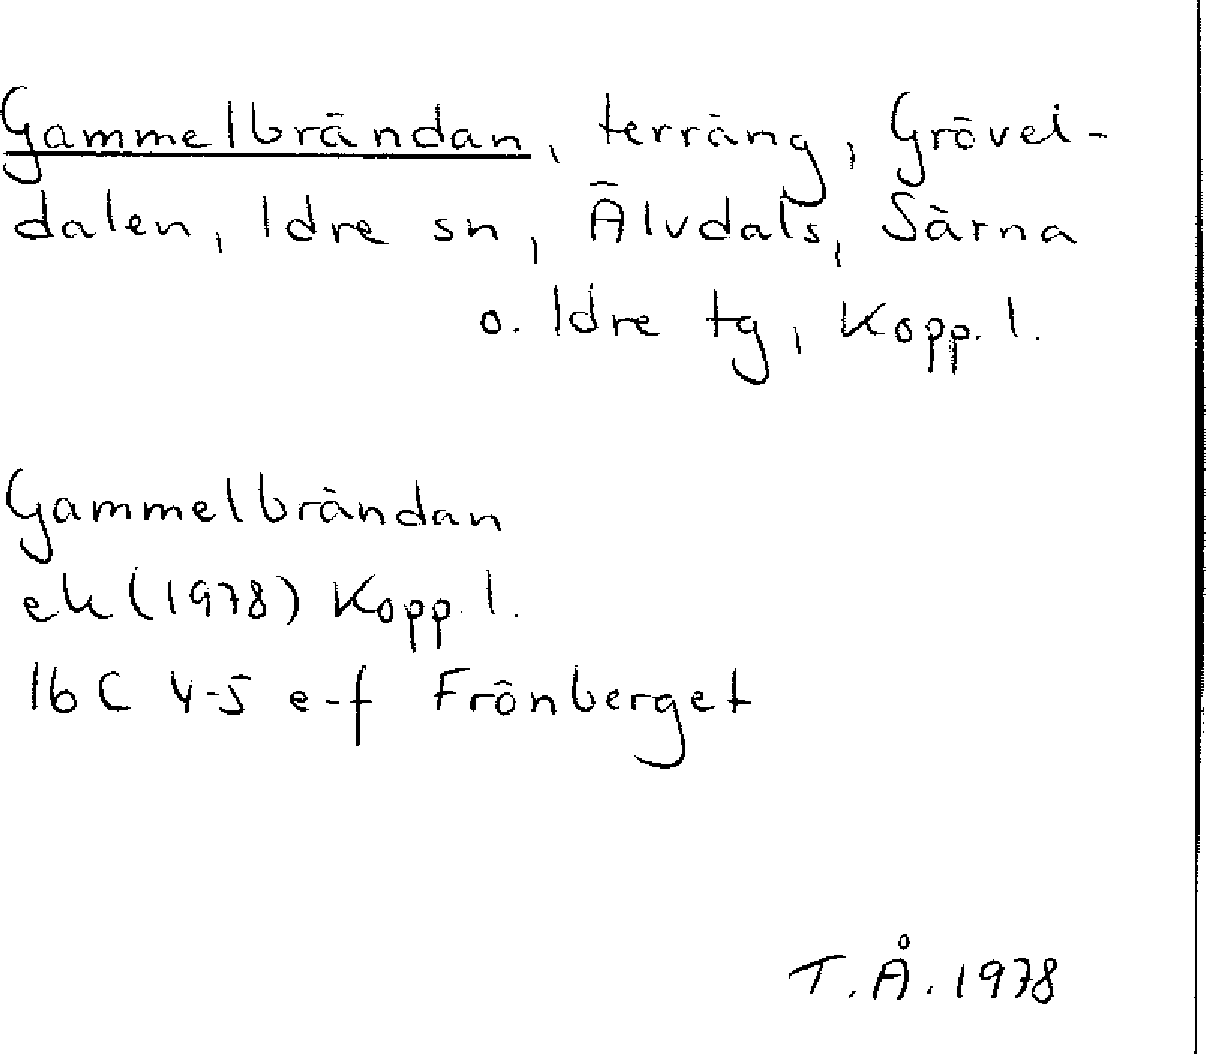 Gammelbrändan, terräng, Grövel-
dalen, Idre sn, Älvdals, Särna
o. Idre tg, Kopp. l.
Gammelbrändan
ek (1978) Kopp. l.
16 C 4-5 e-f Frönberget
T. Å. 1978